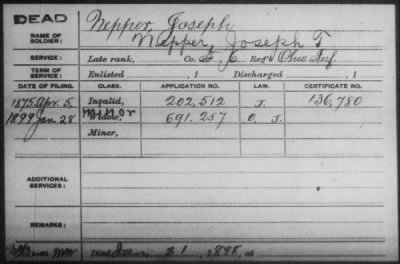 DEAD Nepper, Joseph
NAME OF SOLDIER: Nepper, Joseph T
SERVICE: Late rank, Co. Reg't Ohio Inf.
TERM OF SERVICE: Enlisted , 1 Discharged , 1
DATE OF FILING. CLASS. APPLICATION NO. LAW. CERTIFICATE NO.
1875 Apr. 5, Invalid, 202,512 136,780
1899 Jan. 28 Widow, 691,257
Minor,
ADDITIONAL SERVICES:
REMARKS:
Died 31, 1898, at